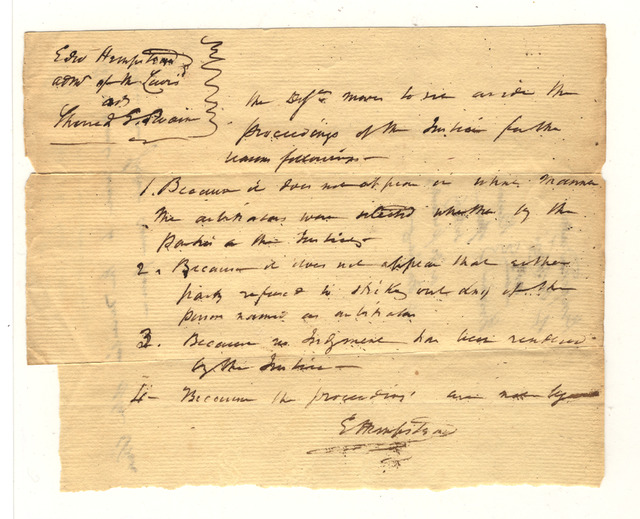 Edw Hempstead
admr of M Lewis
Edw
the Deft moves to set aside the
proceedings of the Justice for the
reasons following—
1. Because it does not appear in what manner
the arbitrators were selected whether by the
Parties or the Justice—
2. Because it does not appear that either
party refused to strike out any of the
person named as arbitrator
3. Because no Judgment has been rendered
by the Justice—
4— Because the proceedings are not
E Hempstead